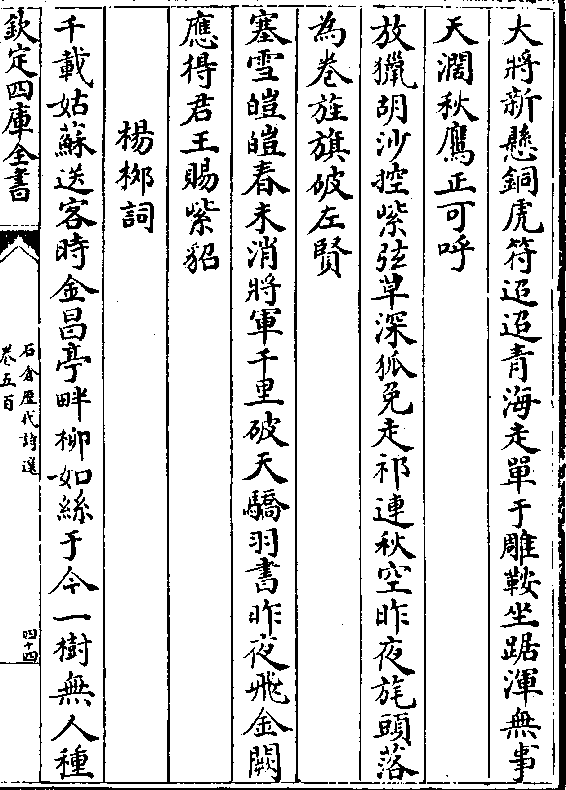 大將新懸銅虎符迢迢青海走單于雕鞍坐踞渾無事
天濶秋鷹正可呼
放獵胡沙控紫弦草深狐兔走祁連秋空昨夜旄頭落
為卷旌旗破左賢
塞雪皚皚春未消將軍千里破天驕羽書昨夜飛金闕
應得君王賜紫貂
楊栁詞
千載姑蘇送客時金昌亭畔栁如絲于今一樹無人種
欽定四庫全書
石倉歷代詩選
卷五百
四十四